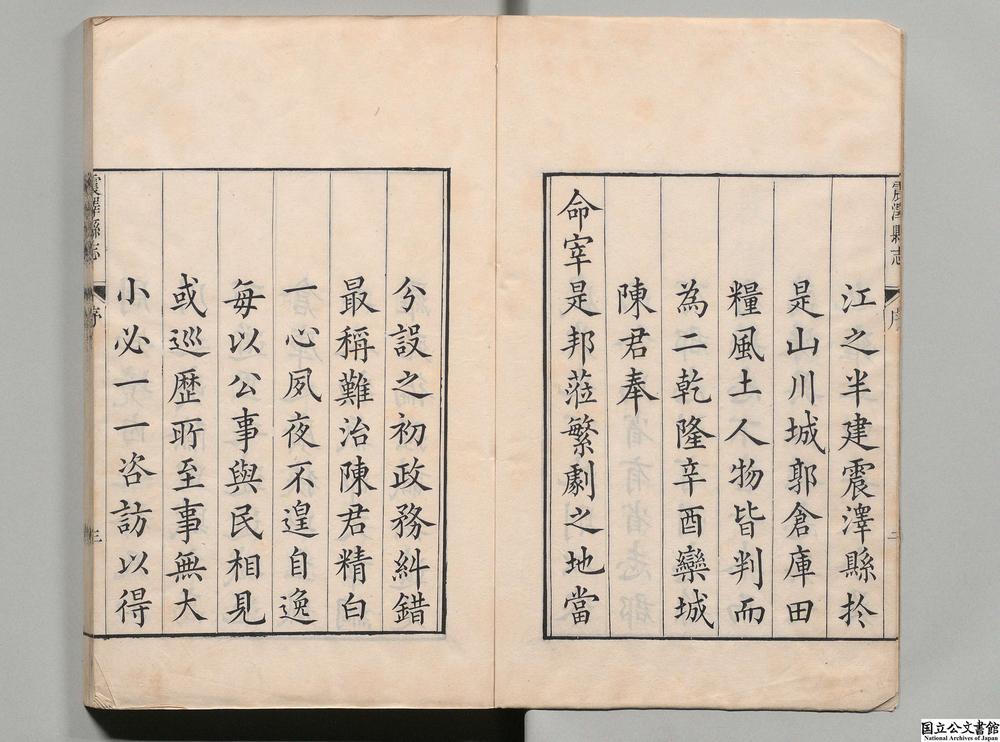 震澤縣志
序
二
江之半建震澤縣扵
是山川城郭倉庫田
糧風土人物皆判而
為二乾隆辛酉欒城
陳君奉
命宰是邦蒞繁劇之地當
兮設之初政務糾錯
最稱難治陳君精白
一心夙夜不遑自逸
每以公事與民相見
或巡歷所至事無大
小必一一咨訪以得
震澤縣志
序
三
国立公文書館
National Archives of Japan